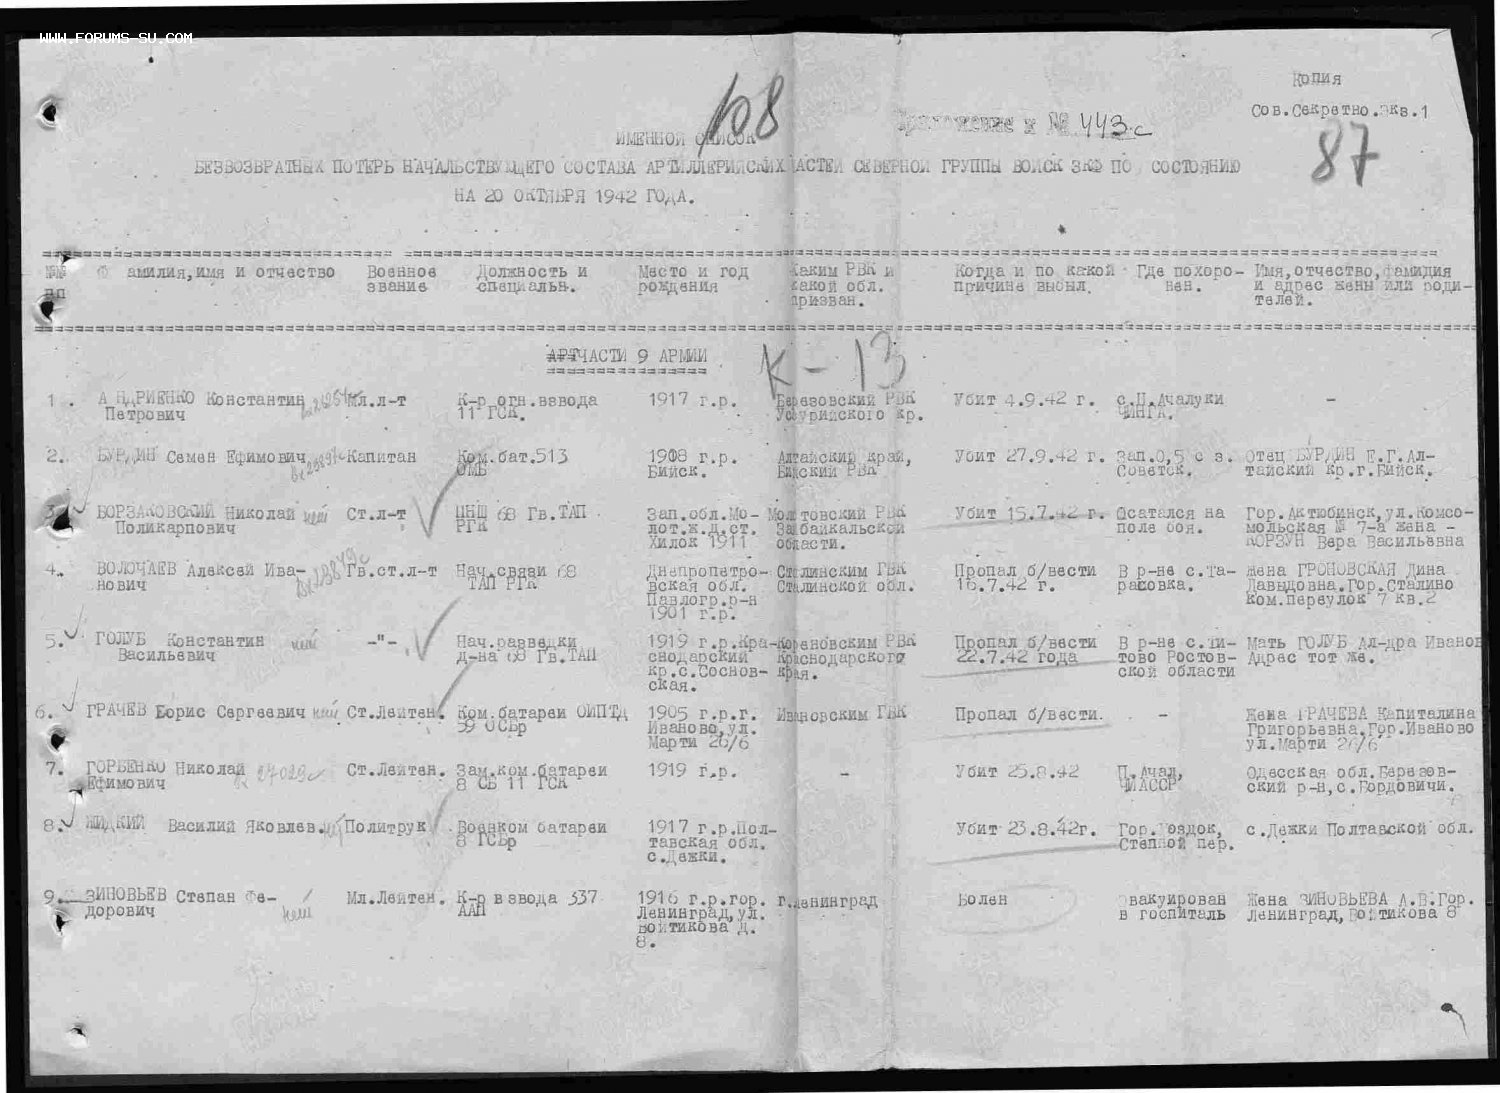 WWW.FORUMS-SU.COM
Копия
Сов.Секретно.экв.1
108
Приложение к № 443с
87
ИМЕННОЙ СПИСОК
БЕЗВОЗВРАТНЫХ ПОТЕРЬ НАЧАЛЬСТВУЮЩЕГО СОСТАВА АРТИЛЛЕРИЙСКИХ ЧАСТЕЙ СЕВЕРНОЙ ГРУППЫ ВОЙСК ЗКФ ПО СОСТОЯНИЮ
НА 20 ОКТЯБРЯ 1942 ГОДА.
№№ Фамилия,имя и отчество Военное Должность и Место и год Каким РВК и Когда и по какой Где похоро- Имя,отчество,фамилия
пп звание специальн. рождения какой обл. причине выбыл. нен. и адрес жены или роди-
призван. телей.
АРТЧАСТИ 9 АРМИИ
К-13
1. АНДРИЕНКО Константин Мл.л-т К-р огн.взвода 1917 г.р. Березовский РВК Убит 4.9.42 г. с.Н.Ачалуки -
Петрович 11 ГСК. Уссурийского кр. ЧИНГА.
2. БУРДИН Семен Ефимович Капитан Ком.бат.513 1908 г.р. Алтайский край, Убит 27.9.42 г. Зап.0,5 с з. Отец БУРДИН Е.Г.Ал-
ОМБ Бийск. Бийский РВК Советск. тайский кр.г.Бийск.
3. БОРЗАКОВСКИЙ Николай Ст.л-т ПНШ 68 Гв.ТАП Зап.обл.Мо- Молотовский РВК Убит 15.7.42 г. Осатался на Гор.Актюбинск,ул.Комсо-
Поликарпович РГК лот.ж.д.ст. Забайкальской поле боя. мольская № 7-а жена -
Хилок 1911 области. КОРЗУН Вера Васильевна
4. ВОЛОЧАЕВ Алексей Ива- Гв.ст.л-т Нач.связи 68 Днепропетро- Сталинским ГВК Пропал б/вести В р-не с.Та- Жена ГРОНОВСКАЯ Дина
нович ТАП РГК вская обл. Сталинской обл. 16.7.42 г. расовка. Давыдовна.Гор.Сталино
Павлогр.р-н Ком.переулок 7 кв.2
1901 г.р.
5. ГОЛУБ Константин -"- Нач.разведки 1919 г.р.Кра- Кореновским РВК Пропал б/вести В р-не с.Ти- Мать ГОЛУБ Ал-дра Иванов
Васильевич д-на 68 Гв.ТАП снодарский Краснодарского 22.7.42 года тово Ростов- Адрес тот же.
кр.с.Соснов- края. ской области
ская.
6. ГРАЧЕВ Борис Сергеевич Ст.Лейтен. Ком.батареи ОИПТД 1905 г.р.г. Ивановским ГВК Пропал б/вести. - Жена ГРАЧЕВА Капиталина
59 ОСБр Иваново,ул. Григорьевна.Гор.Иваново
Марти 26/6 ул.Марти 26/6
7. ГОРБЕНКО Николай Ст.Лейтен. Зам.ком.батареи 1919 г.р. - Убит 25.8.42 П.Ачал, Одесская обл.Березов-
Ефимович 8 СБ 11 ГСК ЧИАССР ский р-н,с.Бордовичи.
8. ЖИДКИЙ Василий Яковлев. Политрук Военком батареи 1917 г.р.Пол- Убит 23.8.42г. Гор.Моздок, с.Дежки Полтавской обл.
8 ГСБр тавская обл. Степной пер.
с.Дежки.
9. ЗИНОВЬЕВ Степан Фе- Мл.Лейтен. К-р взвода 337 1916 г.р.гор. г.Ленинград Болен Эвакуирован Жена ЗИНОВЬЕВА А.В.Гор.
дорович ААП Ленинград,ул. в госпиталь Ленинград,Войтикова 8
Войтикова д.
8.